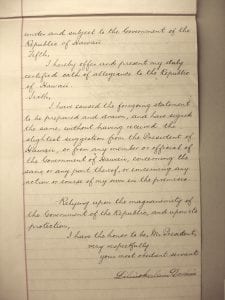 under and subject to the Government of the
Republic of Hawaii.
Fifth,
I hereby offer and present my duly
certified oath of allegiance to the Republic
of Hawaii.
Sixth,
I have caused the foregoing statement
to be prepared and drawn, and have signed
the same, without having received the
slightest suggestion from the President of
Hawaii, or from any member or official of
the Government of Hawaii, concerning the
same or any part thereof, or concerning any
action or course of my own in the premises.
Relying upon the magnanimity of
the Government of the Republic, and upon its
protection,
I have the honor to be, Mr President,
very respectfully
your most obedient servant
Liliuokalani Dominis